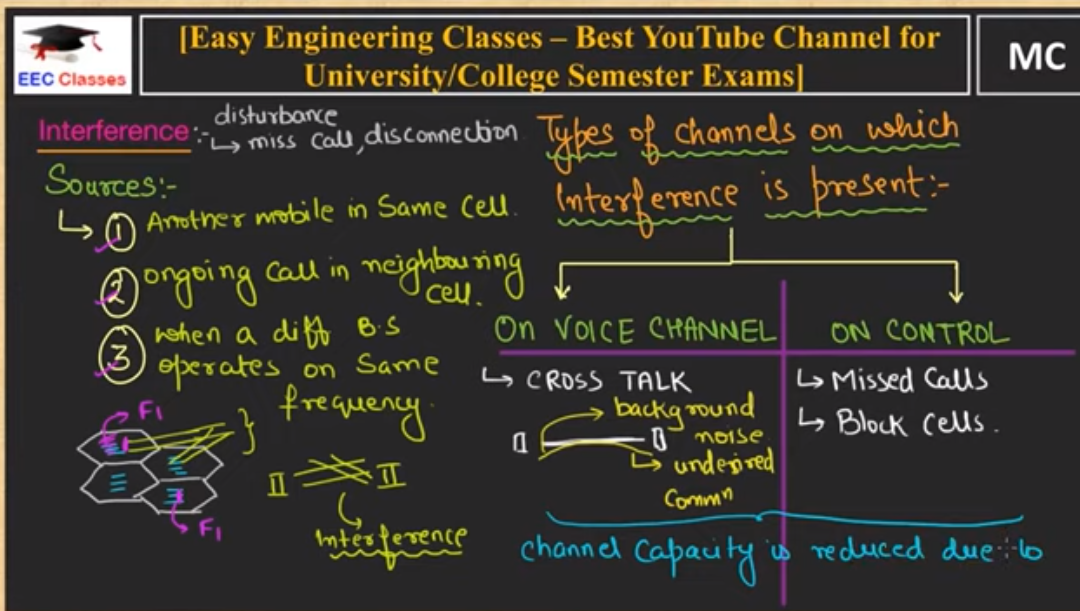 EEC Classes
[Easy Engineering Classes – Best YouTube Channel for
University/College Semester Exams]
MC
Interference :-
disturbance
↳ miss call, disconnection
Sources:-
↳ ① Another mobile in Same Cell.
② ongoing call in neighbouring
cell.
③ when a diff B.S
operates on Same
frequency.
F1
F1
Interference
Types of channels on which
Interference is present:-
On VOICE CHANNEL
↳ CROSS TALK
background
noise
undesired
Commn
ON CONTROL
↳ Missed Calls
↳ Block Cells.
channel capacity is reduced due to